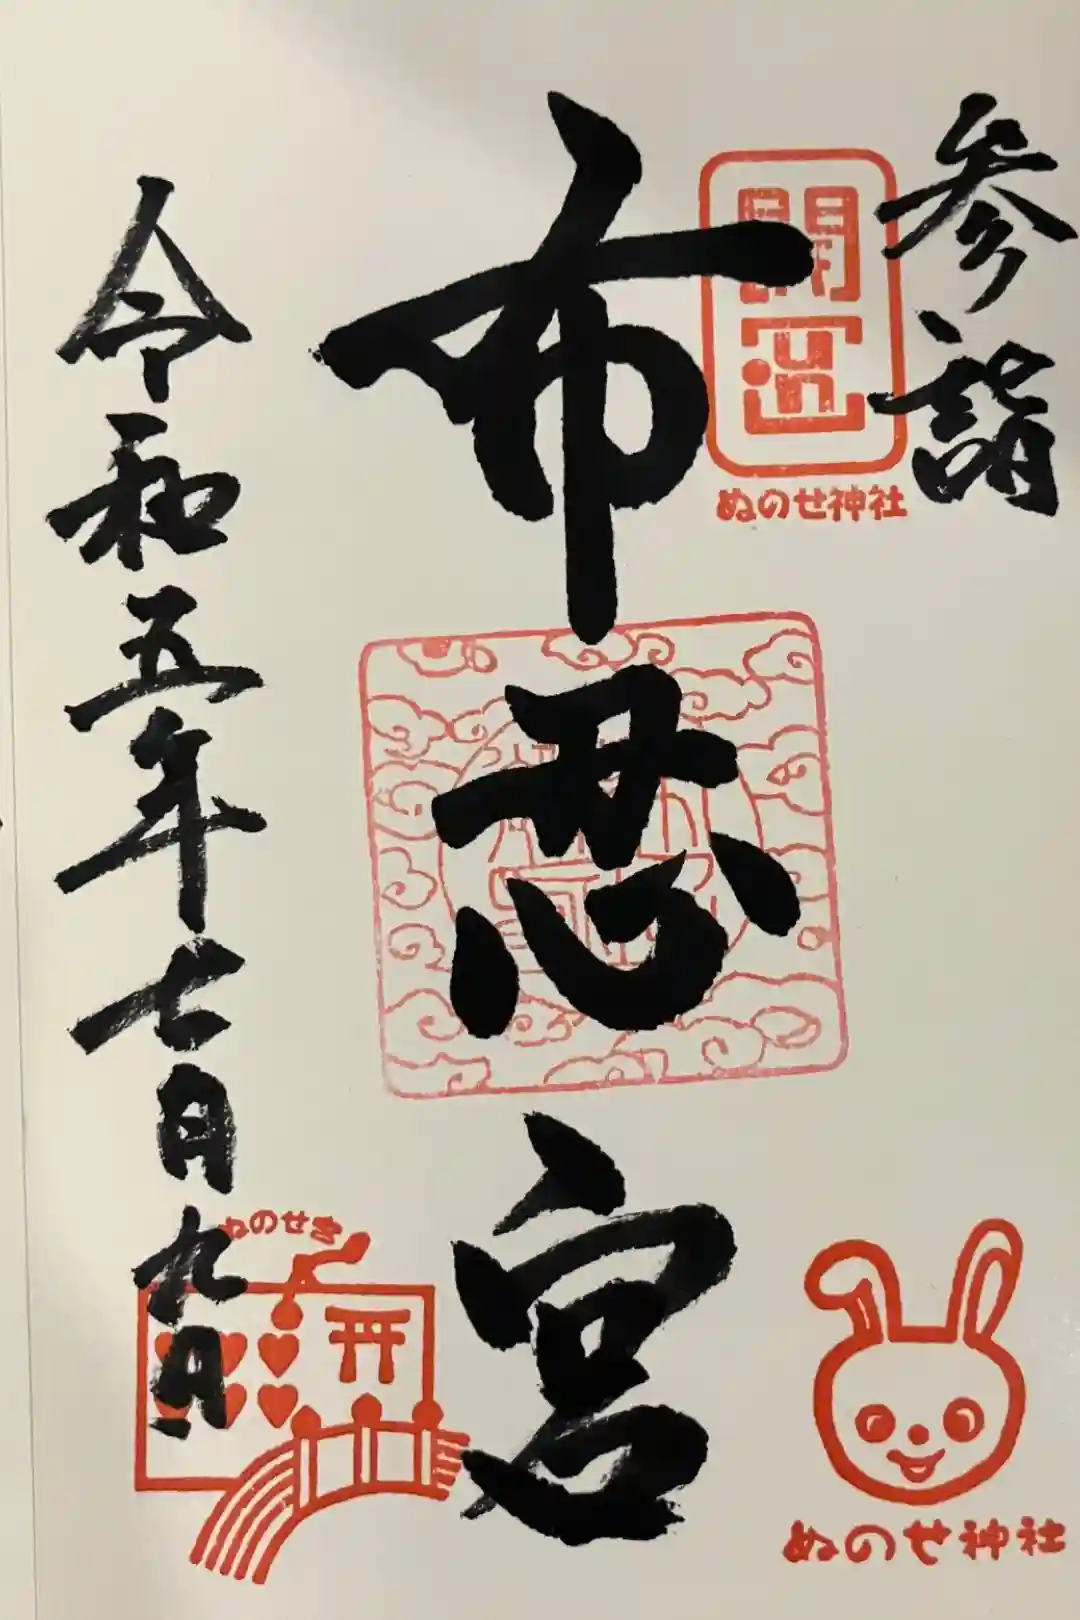 参詣
開運
ぬのせ神社
布忍宮
ぬのせ神社
令和五年七月九日
ぬのせ宮